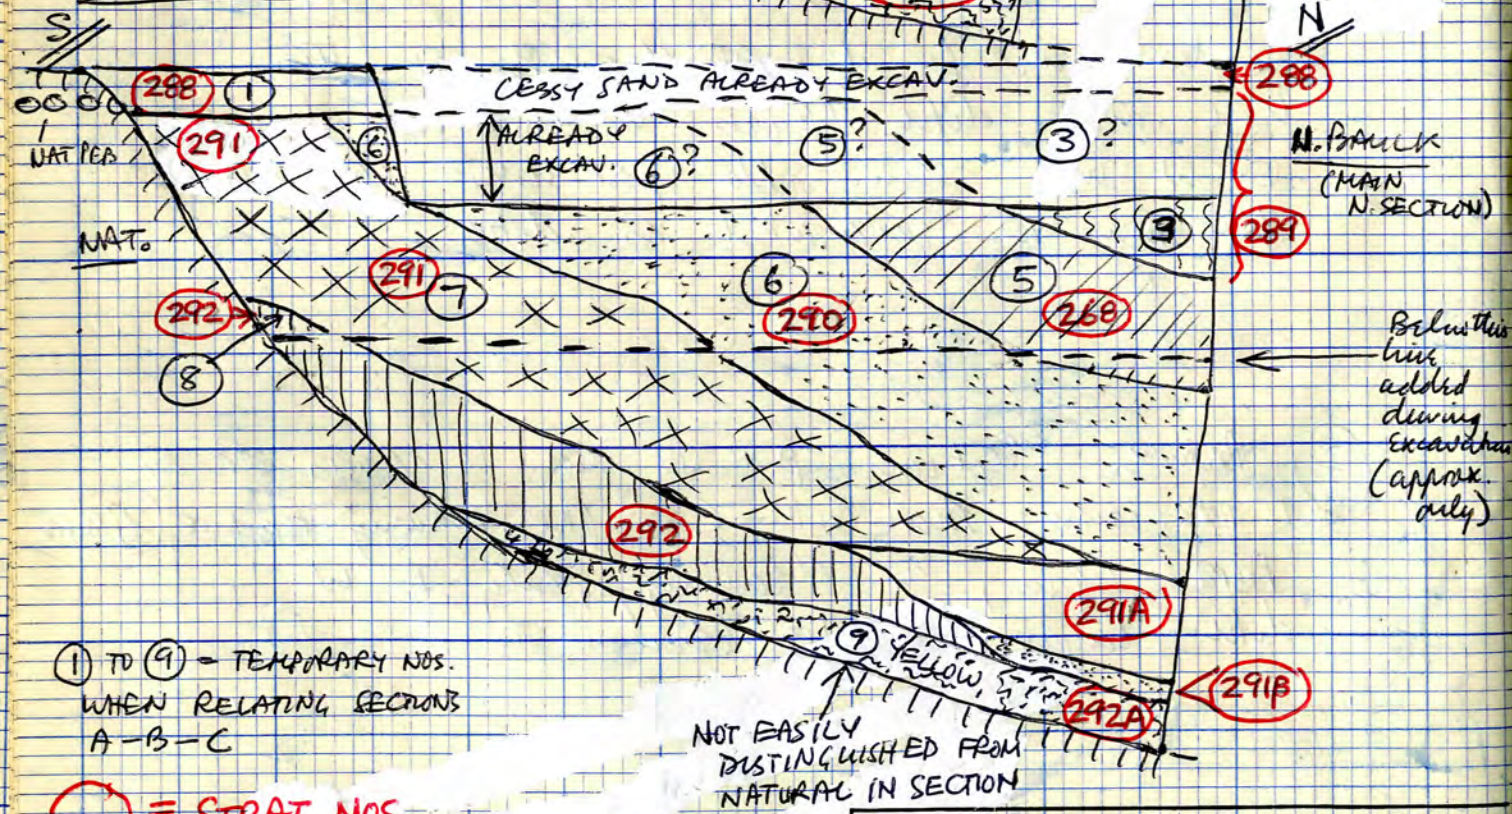 S
N
288 1
CESSY SAND ALREADY EXCAV.
288
NAT PEB
291
6
ALREADY
EXCAV.
6?
5?
3?
N. BAULK
(MAIN
N. SECTION)
NAT.
3
289
291 7
6
290
5
268
292
8
Below this
line
added
during
excavation
(approx.
only)
292
291A
9 YELLOW
291B
292A
1 TO 9 = TEMPORARY NOS.
WHEN RELATING SECTIONS
A-B-C
NOT EASILY
DISTINGUISHED FROM
NATURAL IN SECTION
= STRAT NOS